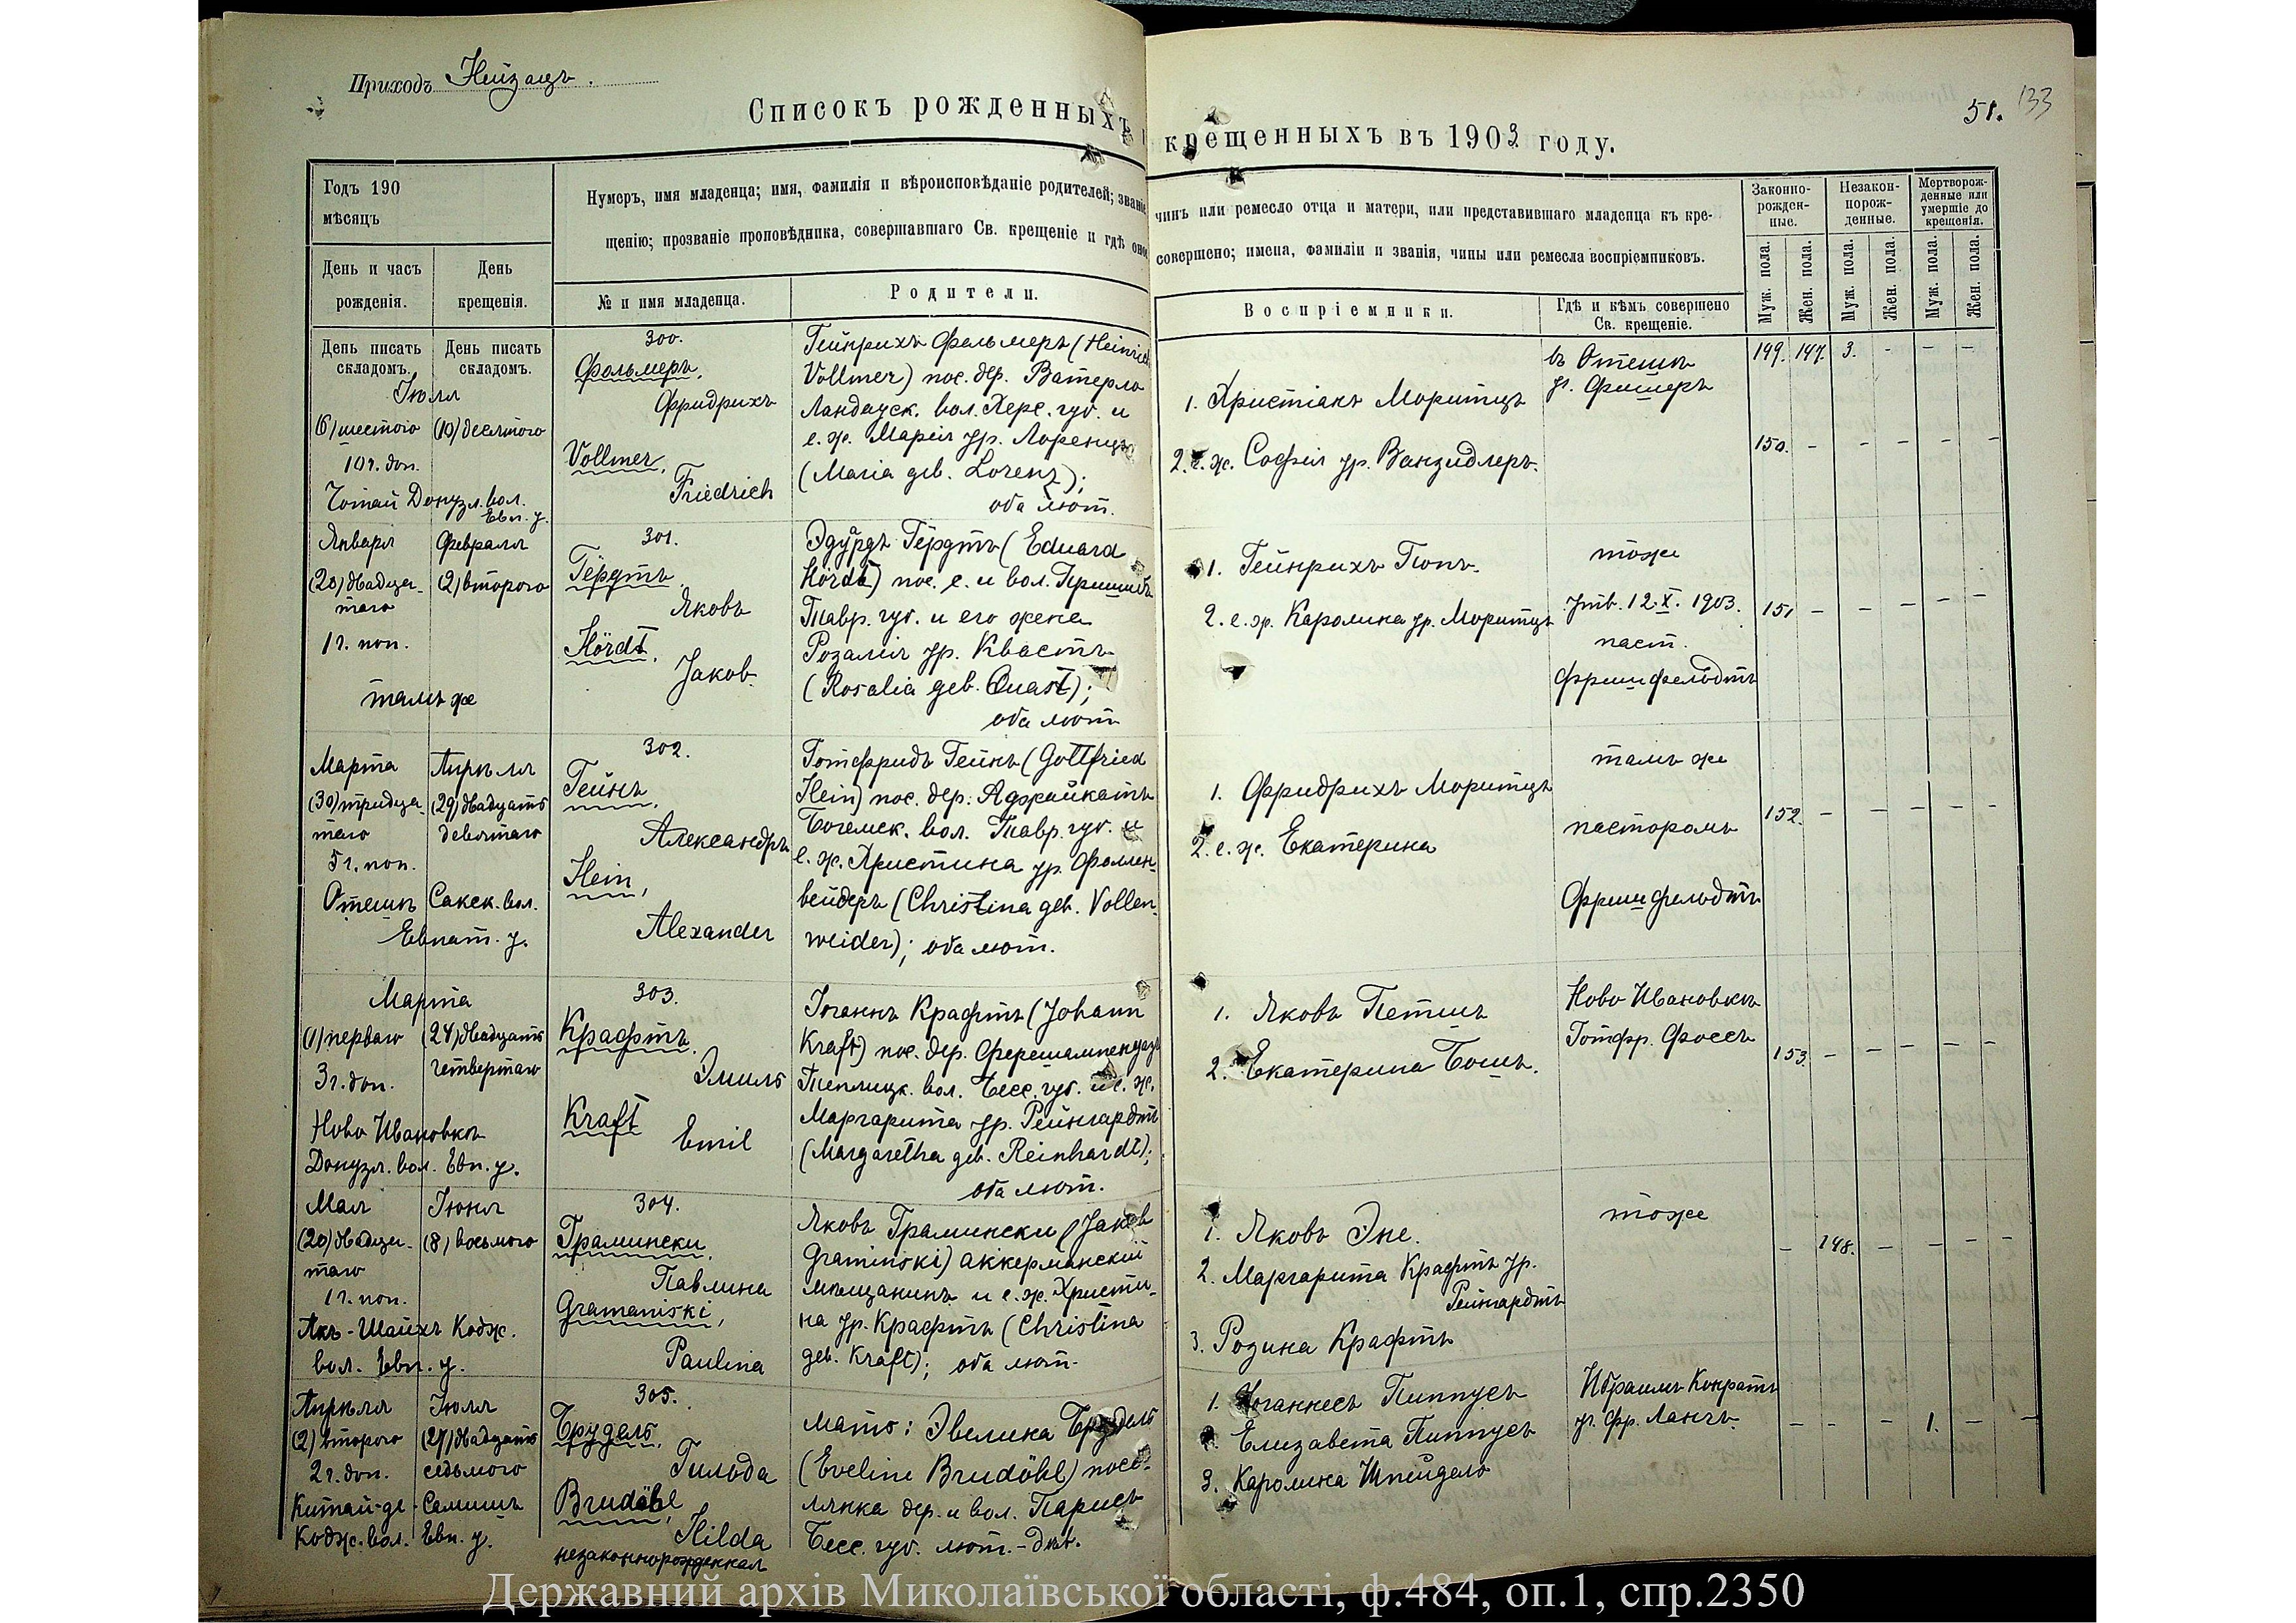 Приходъ Нейзацъ.
51. 133
Списокъ рожденныхъ
крещенныхъ въ 1903 году.
Годъ 190
мѣсяцъ
День и часъ рожденія.
День крещенія.
Нумеръ, имя младенца; имя, фамилія и вѣроисповѣданіе родителей; званіе
щенію; прозваніе проповѣдника, совершавшаго Св. крещеніе и гдѣ оное
№ и имя младенца.
Родители.
чинъ или ремесло отца и матери, или представившаго младенца къ кре-
совершено; имена, фамиліи и званія, чины или ремесла воспріемниковъ.
Воспріемники.
Гдѣ и кѣмъ совершено
Св. крещеніе.
Законно-
рожден-
ные.
Незакон-
норож-
денные.
Мертворож-
денные или
умершіе до
крещенія.
Муж. пола.
Жен. пола.
Муж. пола.
Жен. пола.
Муж. пола.
Жен. пола.
День писать
складомъ.
День писать
складомъ.
Іюля
(6) шестого
(10) десятого
10 ч. доп.
Чотай Донузл. вол.
Евп. у.
300.
Фольмеръ,
Фридрихъ
Vollmer,
Friedrich
Гейнрихъ Фольмеръ (Heinrich
Vollmer) пос. дер. Ватерло
Ландауск. вол. Херс. губ. и
е. ж. Марія ур. Лоренцъ
(Maria geb. Lorenz);
оба лют.
1. Христіанъ Моритцъ
2. е. ж. Софія ур. Ванзидлеръ.
въ Отешъ
у. Фишеръ
149. 147. 3. - - -
150. - - - - -
Января
Февраля
(20) двадца-
таго
(2) второго
1 ч. поп.
тамъ же
301.
Гёрдтъ,
Яковъ
Hördt,
Jakob.
Эдуардъ Гёрдтъ (Eduard
Hördt) пос. с. и вол. Пришибъ
Тавр. губ. и его жена
Розалія ур. Квастъ
(Rosalia geb. Quast);
оба лют
1. Гейнрихъ Попъ.
2. е. ж. Каролина ур. Моритцъ
тоже
утв. 12.X. 1903.
паст.
Фришфельдтъ
151 - - - - -
Марта
Апрѣля
(30) тридца-
таго
(29) двадцать
девятаго
5 ч. поп.
Отешъ Сакск. вол.
Евпат. у.
302.
Гейнъ,
Александръ
Hein,
Alexander
Готфридъ Гейнъ (Gottfried
Hein) пос. дер. Аджайкатъ
Богемск. вол. Тавр. губ. и
е. ж. Христина ур. Фоллен-
вейдеръ (Christina geb. Vollen-
weider); оба лют.
1. Фридрихъ Моритцъ
2. е. ж. Екатерина
тамъ же
пасторомъ
Фришфельдтъ
152. - - - - -
Марта
(1) перваго
(24) двадцать
четвертаго
3 ч. доп.
Ново Ивановка
Донузл. вол. Евп. у.
303.
Крафтъ,
Эмиль
Kraft
Emil
Іоганнъ Крафтъ (Johann
Kraft) пос. дер. Фершампенуазъ
Теплицк. вол. Бесс. губ. и е. ж.
Маргарита ур. Рейнгардтъ
(Margaretha geb. Reinhardt);
оба лют.
1. Яковъ Петшъ
2. Екатерина Бошъ.
Ново Ивановкѣ
Готфр. Фоссъ
153. - - - - -
Мая
Іюня
(20) двадца-
таго
(8) восьмого
1 ч. поп.
Акъ-Шайхъ Кодж.
вол. Евп. у.
304.
Грамински,
Павлина
Gramanski,
Paulina
Яковъ Грамински (Jakob
Graminski) аккерманскій
мѣщанинъ и е. ж. Христи-
на ур. Крафтъ (Christina
geb. Kraft); оба лют.
1. Яковъ Эне.
2. Маргарита Крафтъ ур.
Рейнгардтъ
3. Родина Крафтъ
тоже
- 148. - - - -
Апрѣля
Іюля
(2) второго
(27) двадцать
седьмого
2 ч. доп.
Китай-де-Самишъ
Кодж. вол. Евп. у.
305.
Брудель,
Гильда
Brudöhl,
Hilda
незаконнорожденная
мать: Эвелина Брудель
(Eveline Brudöhl) посе-
лянка дер. и вол. Парижъ
Бесс. губ. лют.-дѣв.
1. Іоганнесъ Пиппусъ
2. Елизавета Пиппусъ
3. Каролина Шпейдель
Ибраимъ Конратъ
у. Фр. Лангъ.
- - - 1. - -
Державний архів Миколаївської області, ф.484, оп.1, спр.2350